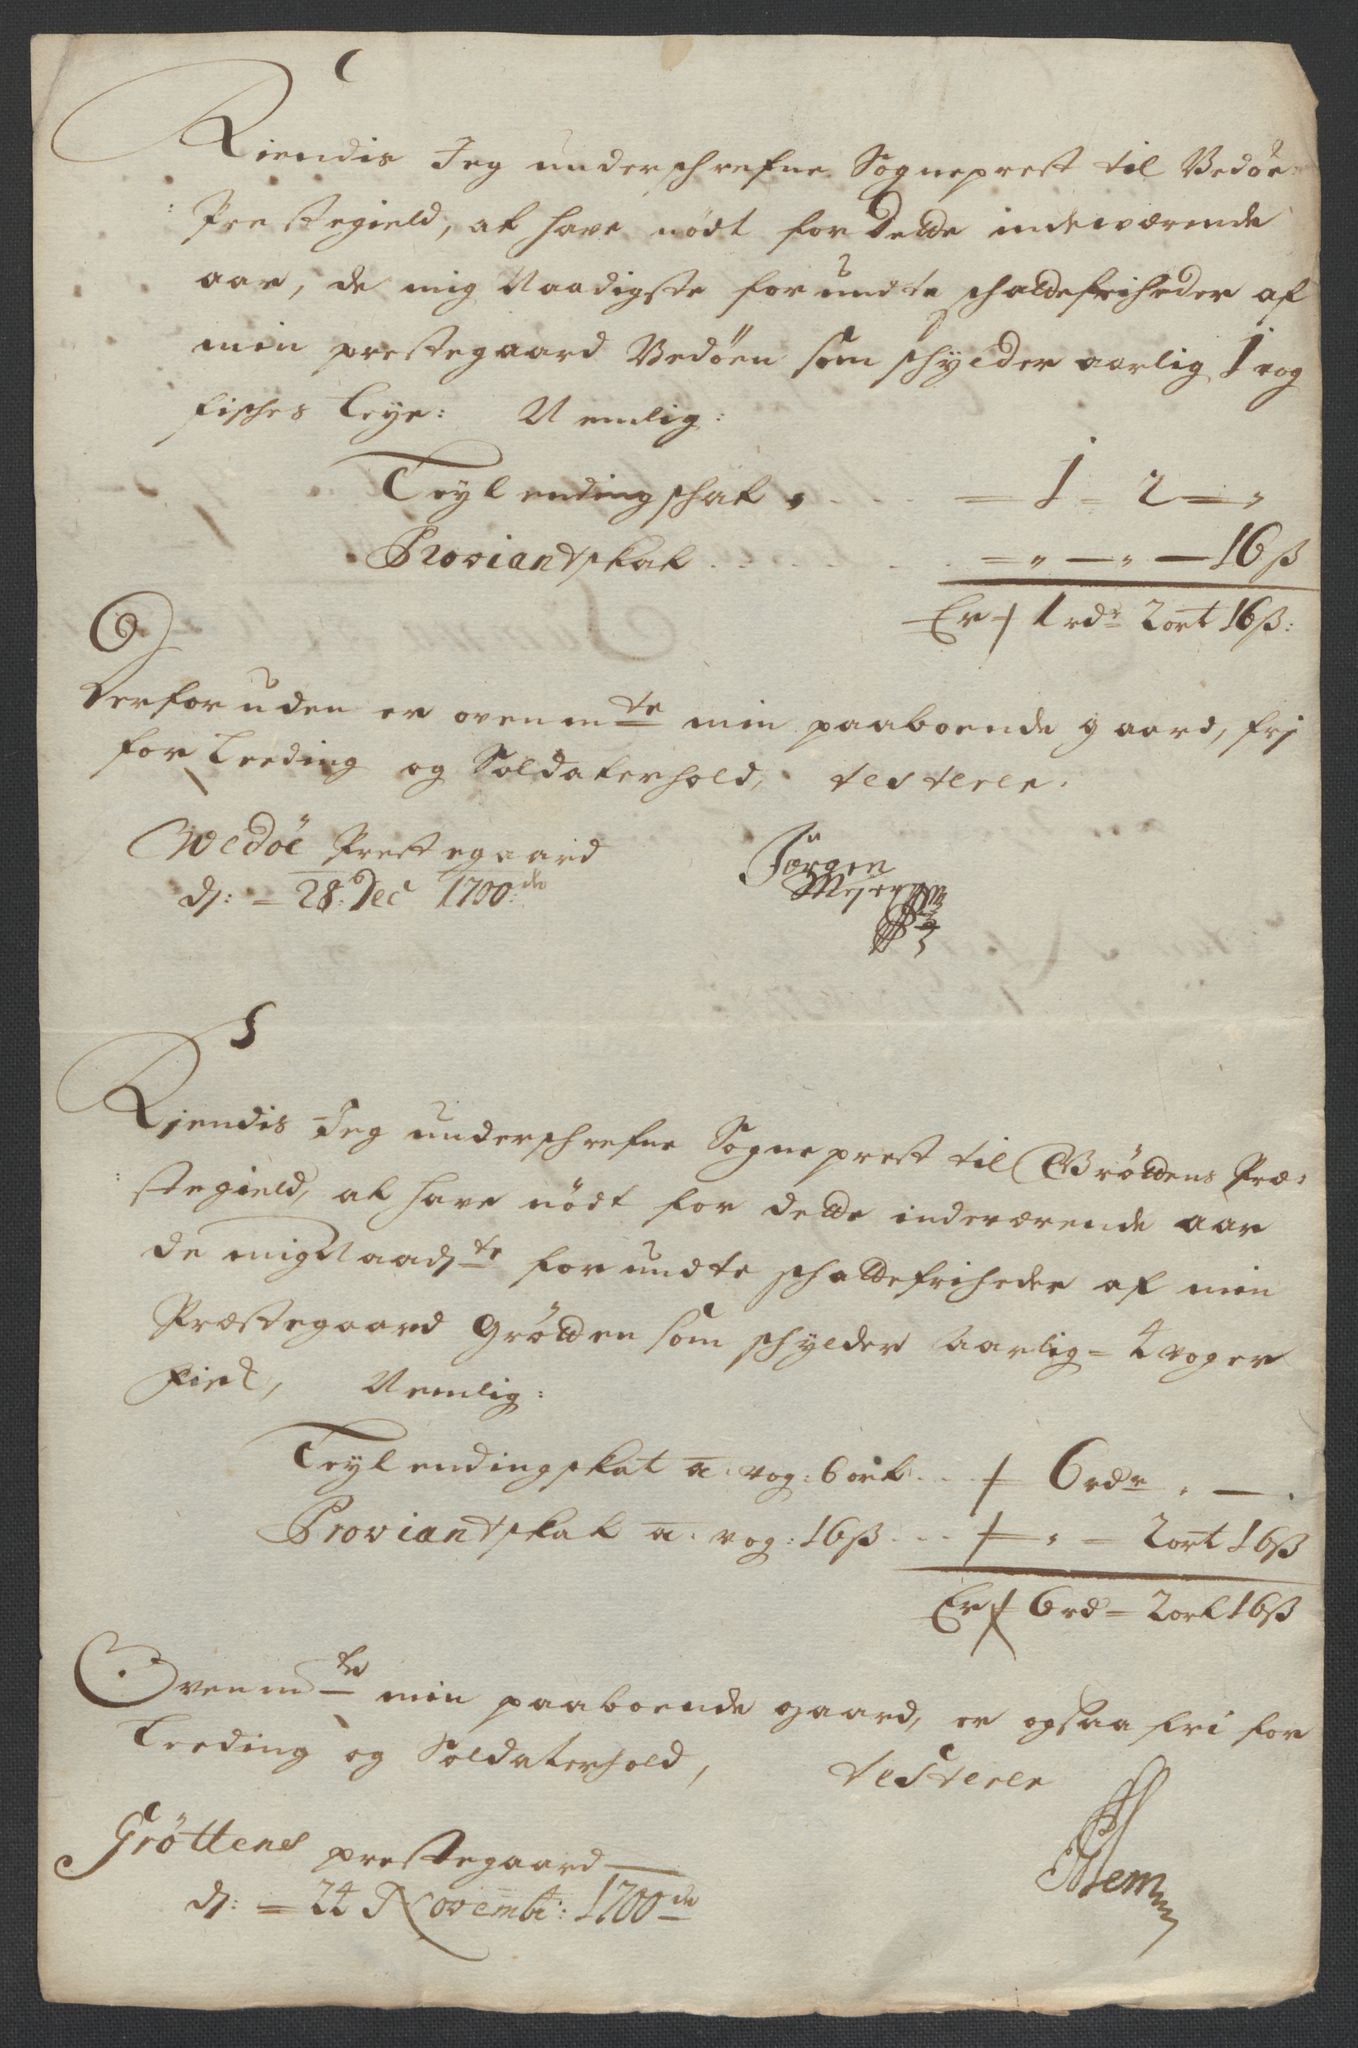 Kiendis Jeg underschrefne Sogneprest til Vedøe
Prestegield, at have nødt for dette indeværende
aar, de mig Naadigste forundte schattefriheder af
min prestegaard Vedøen som schylder aarlig 1 vog
fisches Leye: Nemlig:
Leylendingschat = 1 = 2 = "
Proviantskat = " — " — 16ß
Er 1 rdr 2 ort 16ß:
Derforuden er ovenmte min paaboende gaard, frj
for Leeding og Soldaterhold, testerer.
Wedøe Prestegaard
dj: 28: Dec 1700: de
Jørgen
Mejer
Kjendis Jeg underschrefne Sogneprest til Grøttens Præ:
stegield, at have nødt for dette indeværende aar
de mig Naadste forundte schattefriheder af min
Præstegaard Grøtten som schylder aarlig = 4 voger
Fisk, Nemlig:
Leylendingskat a. vog: 6 ort 6 rdr " —
Proviantskat a. vog: 16ß " = 2 ort 16ß
Er 6 rd = 2 ort 16ß
Ovenmte min paaboende gaard, er ogsaa fri for
Leeding og Soldaterhold, testerer
Grøttens prestegaard
dj: = 24 Novembr: 1700 de